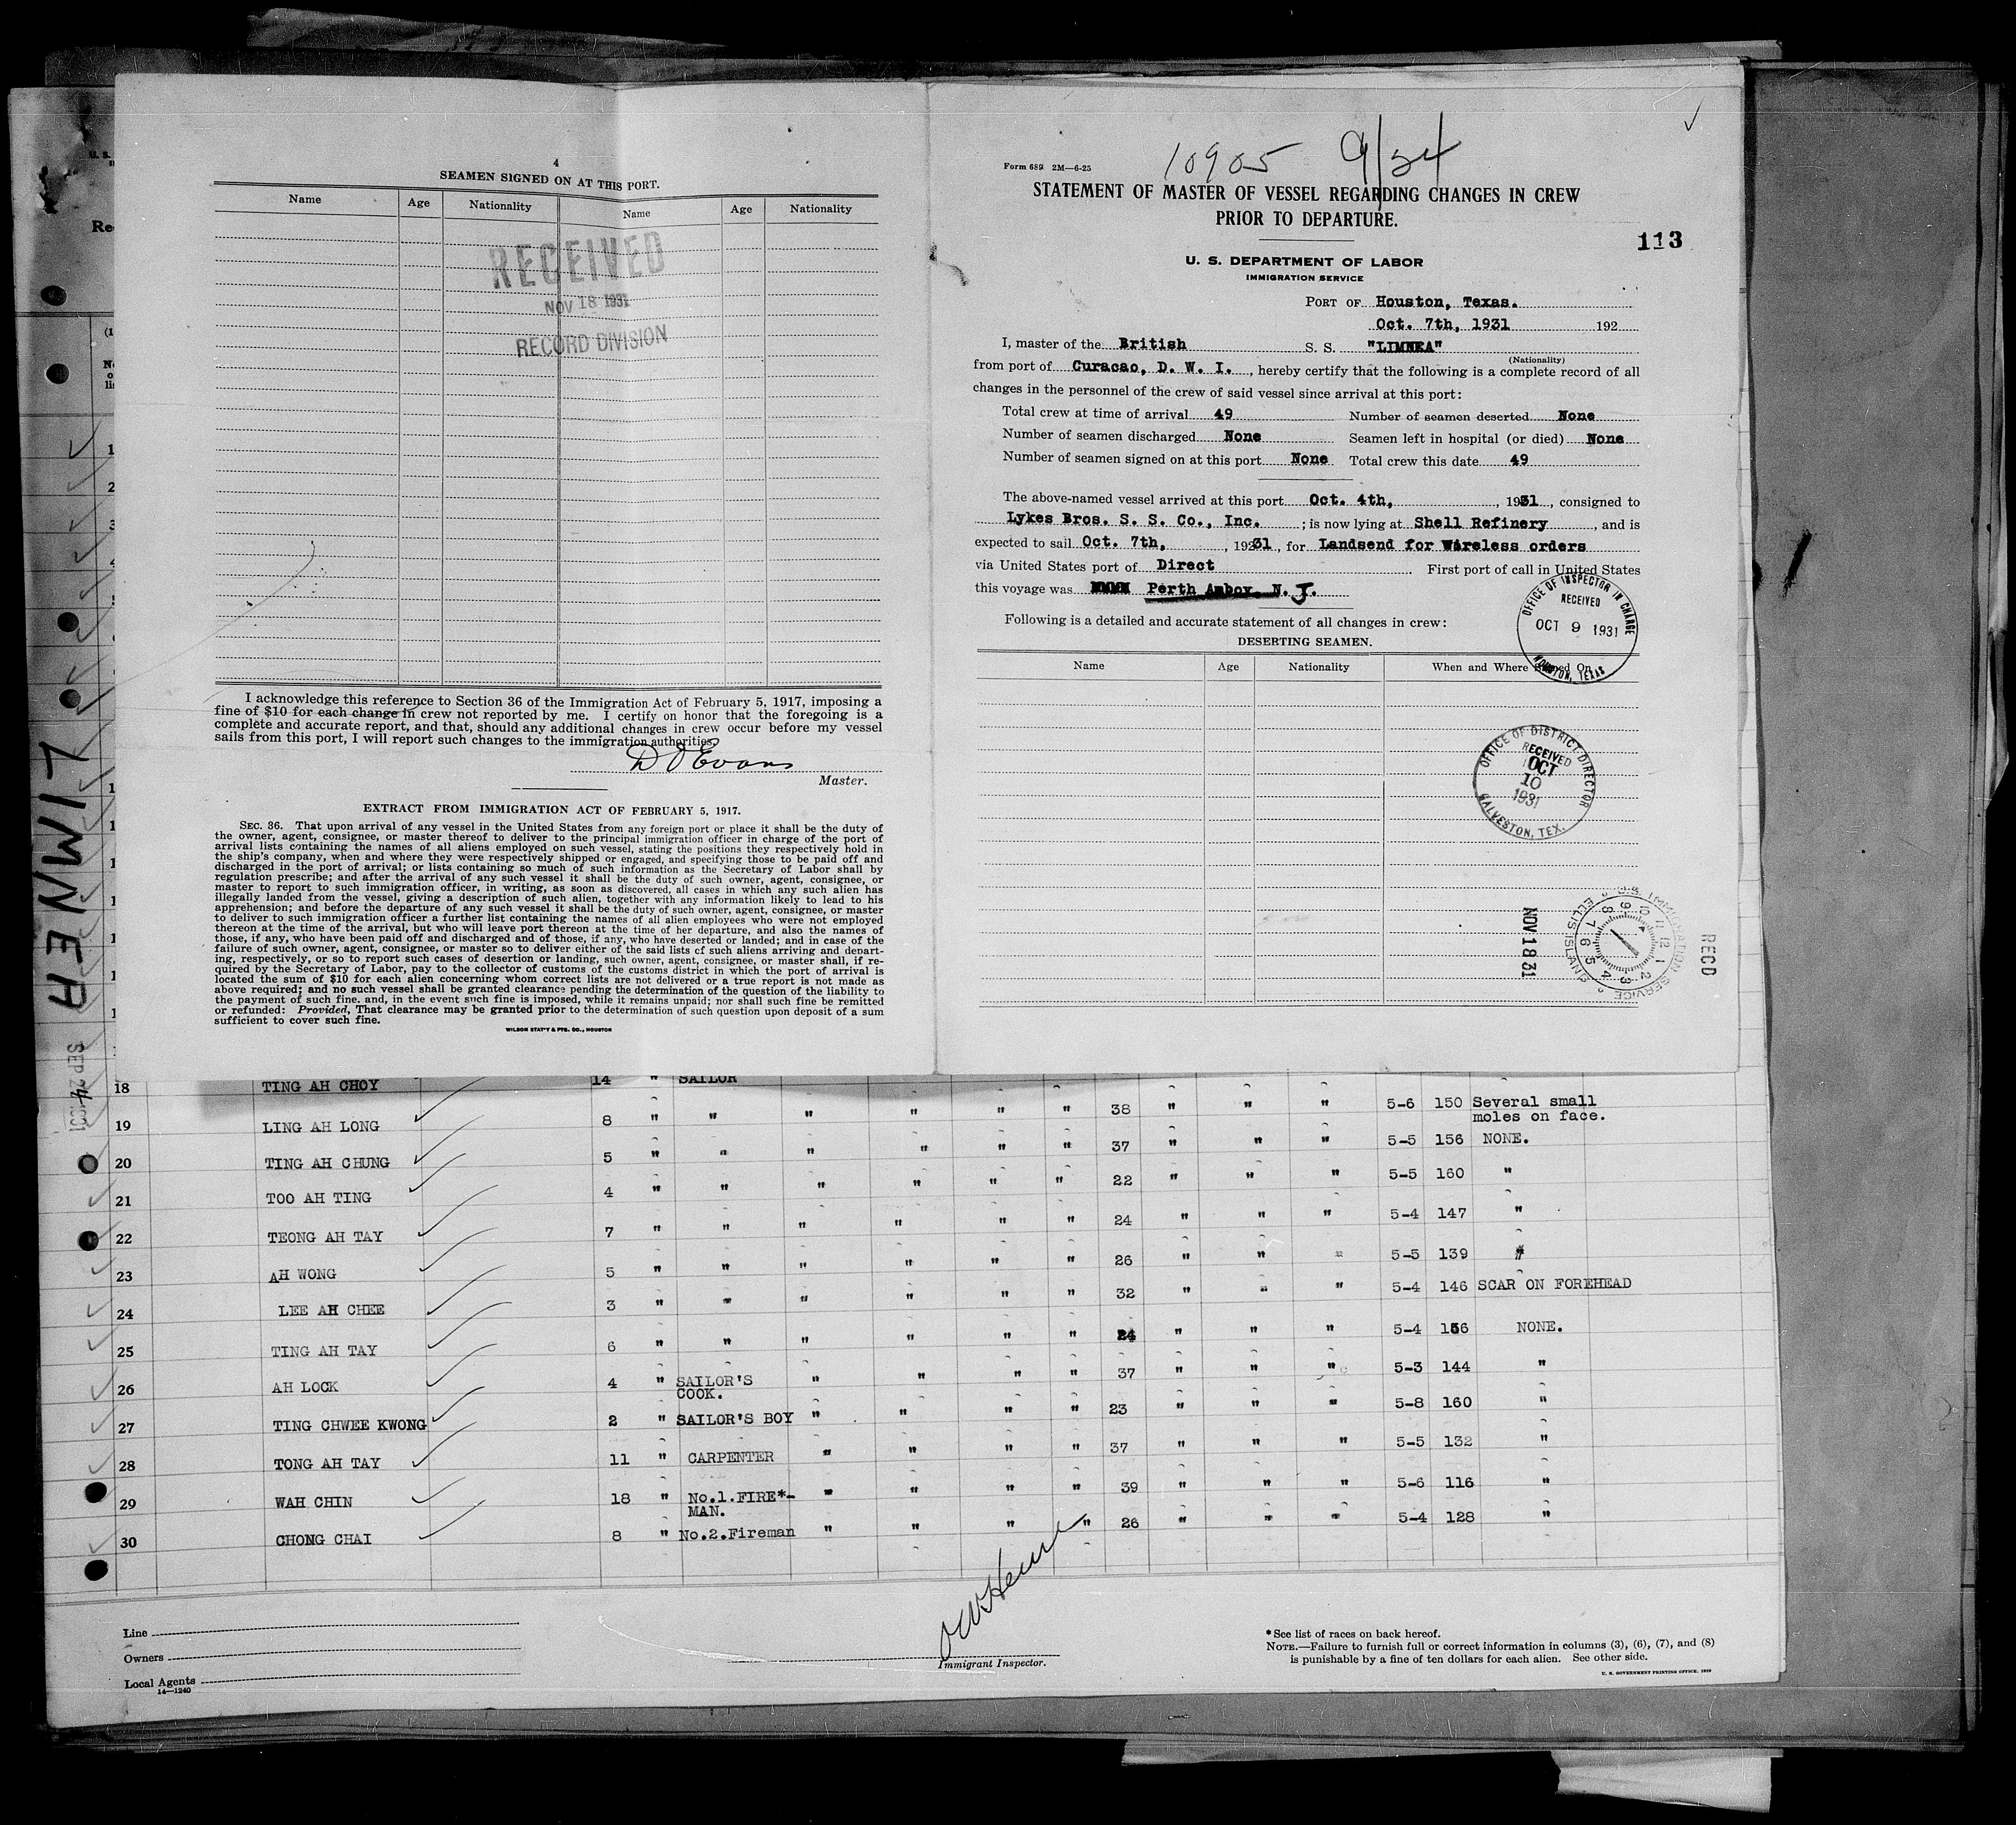 4
SEAMEN SIGNED ON AT THIS PORT.
Name Age Nationality Name Age Nationality
RECEIVED
NOV 18 1931
RECORD DIVISION
I acknowledge this reference to Section 36 of the Immigration Act of February 5, 1917, imposing a
fine of $10 for each change in crew not reported by me. I certify on honor that the foregoing is a
complete and accurate report, and that, should any additional changes in crew occur before my vessel
sails from this port, I will report such changes to the immigration authorities.
D J Evans
Master.
EXTRACT FROM IMMIGRATION ACT OF FEBRUARY 5, 1917.
SEC. 36. That upon arrival of any vessel in the United States from any foreign port or place it shall be the duty of
the owner, agent, consignee, or master thereof to deliver to the principal immigration officer in charge of the port of
arrival lists containing the names of all aliens employed on such vessel, stating the positions they respectively hold in
the ship's company, when and where they were respectively shipped or engaged, and specifying those to be paid off and
discharged in the port of arrival; or lists containing so much of such information as the Secretary of Labor shall by
regulation prescribe; and after the arrival of any such vessel it shall be the duty of such owner, agent, consignee, or
master to report to such immigration officer, in writing, as soon as discovered, all cases in which any such alien has
illegally landed from the vessel, giving a description of such alien, together with any information likely to lead to his
apprehension; and before the departure of any such vessel it shall be the duty of such owner, agent, consignee, or master
to deliver to such immigration officer a further list containing the names of all alien employees who were not employed
thereon at the time of the arrival, but who will leave port thereon at the time of her departure, and also the names of
those, if any, who have been paid off and discharged and of those, if any, who have deserted or landed; and in case of the
failure of such owner, agent, consignee, or master so to deliver either of the said lists of such aliens arriving and depart-
ing, respectively, or so to report such cases of desertion or landing, such owner, agent, consignee, or master shall, if re-
quired by the Secretary of Labor, pay to the collector of customs of the customs district in which the port of arrival is
located the sum of $10 for each alien concerning whom correct lists are not delivered or a true report is not made as
above required; and no such vessel shall be granted clearance pending the determination of the question of the liability to
the payment of such fine, and, in the event such fine is imposed, while it remains unpaid; nor shall such fine be remitted
or refunded: Provided, That clearance may be granted prior to the determination of such question upon deposit of a sum
sufficient to cover such fine.
WILSON STAT'Y & PTG. CO., HOUSTON
10905 9/24
Form 689 2M—6-25
STATEMENT OF MASTER OF VESSEL REGARDING CHANGES IN CREW
PRIOR TO DEPARTURE.
113
U. S. DEPARTMENT OF LABOR
IMMIGRATION SERVICE
PORT OF Houston, Texas.
Oct. 7th, 1931 192
I, master of the British S. S. "LIMNEA"
(Nationality)
from port of Curacao, D. W. I. , hereby certify that the following is a complete record of all
changes in the personnel of the crew of said vessel since arrival at this port:
Total crew at time of arrival 49 Number of seamen deserted None
Number of seamen discharged None Seamen left in hospital (or died) None
Number of seamen signed on at this port None Total crew this date 49
The above-named vessel arrived at this port Oct. 4th, , 1931 , consigned to
Lykes Bros. S. S. Co., Inc. ; is now lying at Shell Refinery , and is
expected to sail Oct. 7th, , 19231 , for Landsend for Wireless orders
via United States port of Direct First port of call in United States
this voyage was Perth Amboy, N. J.
Following is a detailed and accurate statement of all changes in crew:
DESERTING SEAMEN.
Name Age Nationality When and Where Signed On
OFFICE OF INSPECTOR IN CHARGE
RECEIVED
OCT 9 1931
HOUSTON, TEXAS
OFFICE OF DISTRICT DIRECTOR
RECEIVED
OCT
10
1931
GALVESTON, TEX.
RECD
U.S. IMMIGRATION SERVICE
ELLIS ISLAND
1 2 3 4 5 6 7 8 9 10 11 12
NOV 18 31
LIMNEA
SEP 24 1931
18 TING AH CHOY 14 " SAILOR
19 LING AH LONG 8 " " " " " " 38 " " " 5-6 150 Several small
moles on face.
20 TING AH CHUNG 5 " " " " " " 37 " " " 5-5 156 NONE.
21 TOO AH TING 4 " " " " " " 22 " " " 5-5 160 "
22 TEONG AH TAY 7 " " " " " " 24 " " " 5-4 147 "
23 AH WONG 5 " " " " " " 26 " " " 5-5 139 "
24 LEE AH CHEE 3 " " " " " " 32 " " " 5-4 146 SCAR ON FOREHEAD
25 TING AH TAY 6 " " " " " " 24 " " " 5-4 NONE.
26 AH LOCK 4 " SAILOR'S " " " " 37 " " " 5-3 144 "
COOK.
27 TING CHWEE KWONG 2 " SAILOR'S BOY " " " " 23 " " " 5-8 160 "
28 TONG AH TAY 11 " CARPENTER " " " " 37 " " " 5-5 132 "
29 WAH CHIN 18 " No.1.FIRE*- " " " " 39 " " " 5-6 116 "
MAN.
30 CHONG CHAI 8 " No.2.Fireman " " " " 26 " " " 5-4 128 "
Line
Owners
Local Agents
14—1240
Immigrant Inspector.
* See list of races on back hereof.
NOTE.—Failure to furnish full or correct information in columns (3), (6), (7), and (8)
is punishable by a fine of ten dollars for each alien. See other side.
U. S. GOVERNMENT PRINTING OFFICE: 1929